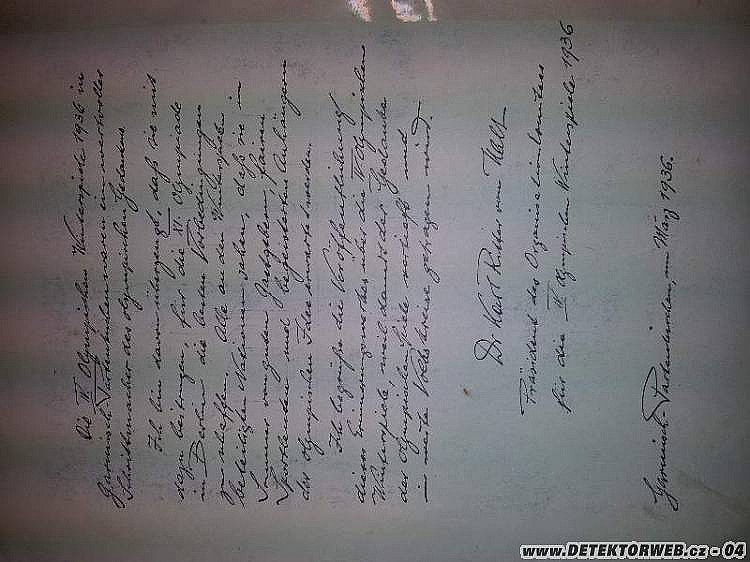 Die IV. Olympischen Winterspiele 1936 in
Garmisch-Partenkirchen waren ein wertvoller
Schrittmacher des olympischen Gedankens.
Ich bin davon überzeugt, daß sie mit
dazu beitrugen, für die XI. Olympiade
in Berlin die besten Vorbedingungen
zu schaffen. Alle an den Winterspielen
beteiligten Nationen sahen, daß sie in
unseren Gastgebern, fairen
Sportleuten und begeisterten Anhängern
der olympischen Idee wurden.
Ich begrüße die Veröffentlichung
dieses über die IV. Olympischen
Winterspiele, weil damit der Gedanke
der Olympischen Spiele vertieft und
in weite Volkskreise getragen wird.
Dr. Karl Ritter von Halt
Präsident des Organisationskomitees
für die IV. Olympischen Winterspiele 1936
Garmisch-Partenkirchen, im März 1936.
www.DETEKTORWEB.cz - 04